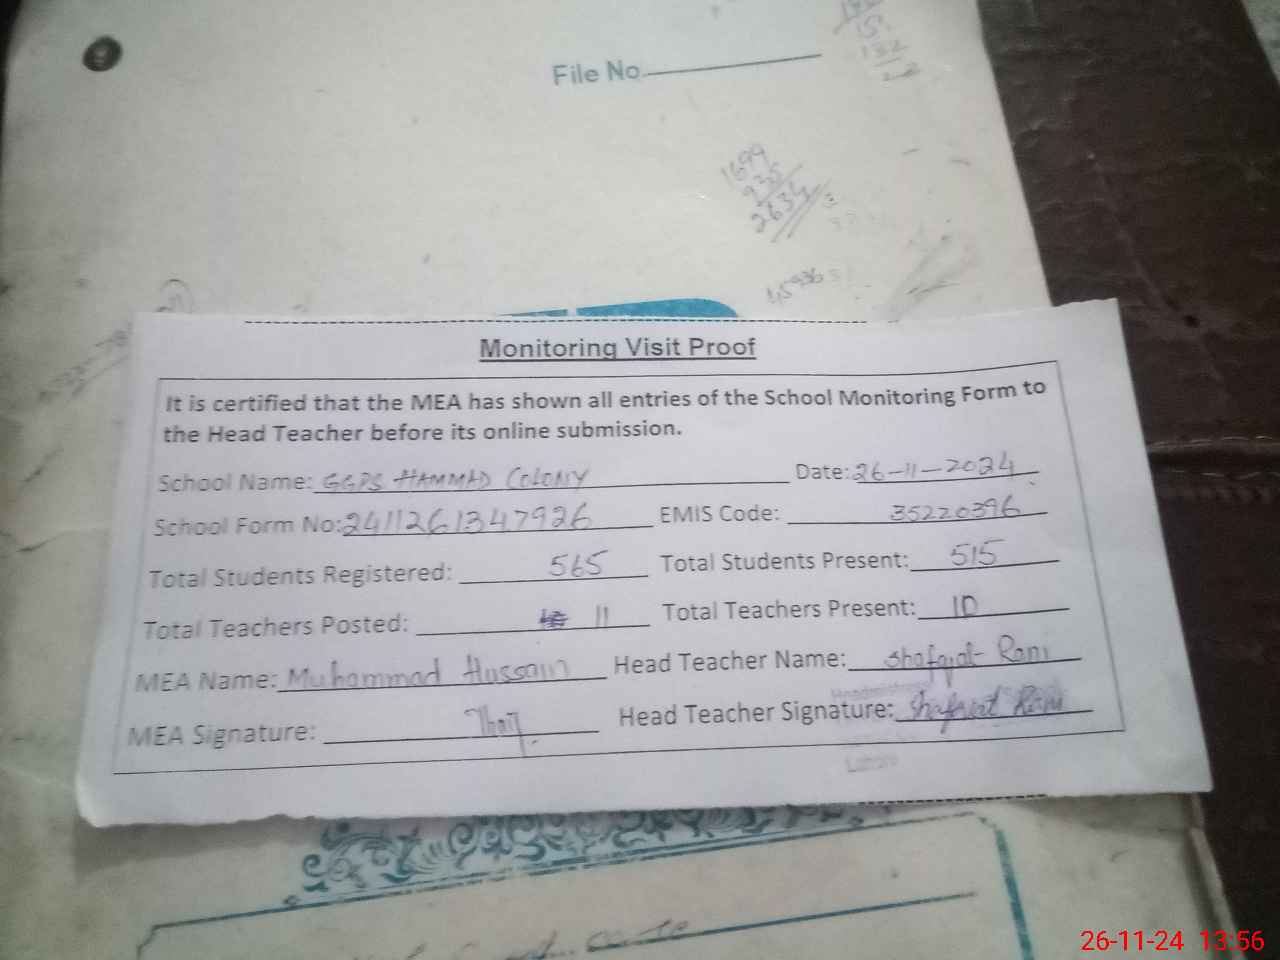 File No.
1699
935
2634
Monitoring Visit Proof
It is certified that the MEA has shown all entries of the School Monitoring Form to
the Head Teacher before its online submission.
School Name: GGPS HAMMAD COLONY Date: 26-11-2024
School Form No: 2411261347926 EMIS Code: 35220396
Total Students Registered: 565 Total Students Present: 515
Total Teachers Posted: 11 Total Teachers Present: 10
MEA Name: Muhammad Hussain Head Teacher Name: Shafqat Rani
MEA Signature: Head Teacher Signature: Shafqat Rani
26-11-24 13:56